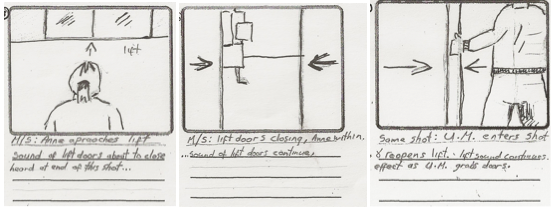 lift
M/S: Anne aproaches lift
Sound of lift doors about to close
heard at end of this shot...
M/S: lift doors closing, Anne within.
...sound of lift doors continue.
Same shot: U.M. enters shot
& reopens lift. lift sound continues.
effect as U.M. grabs doors.